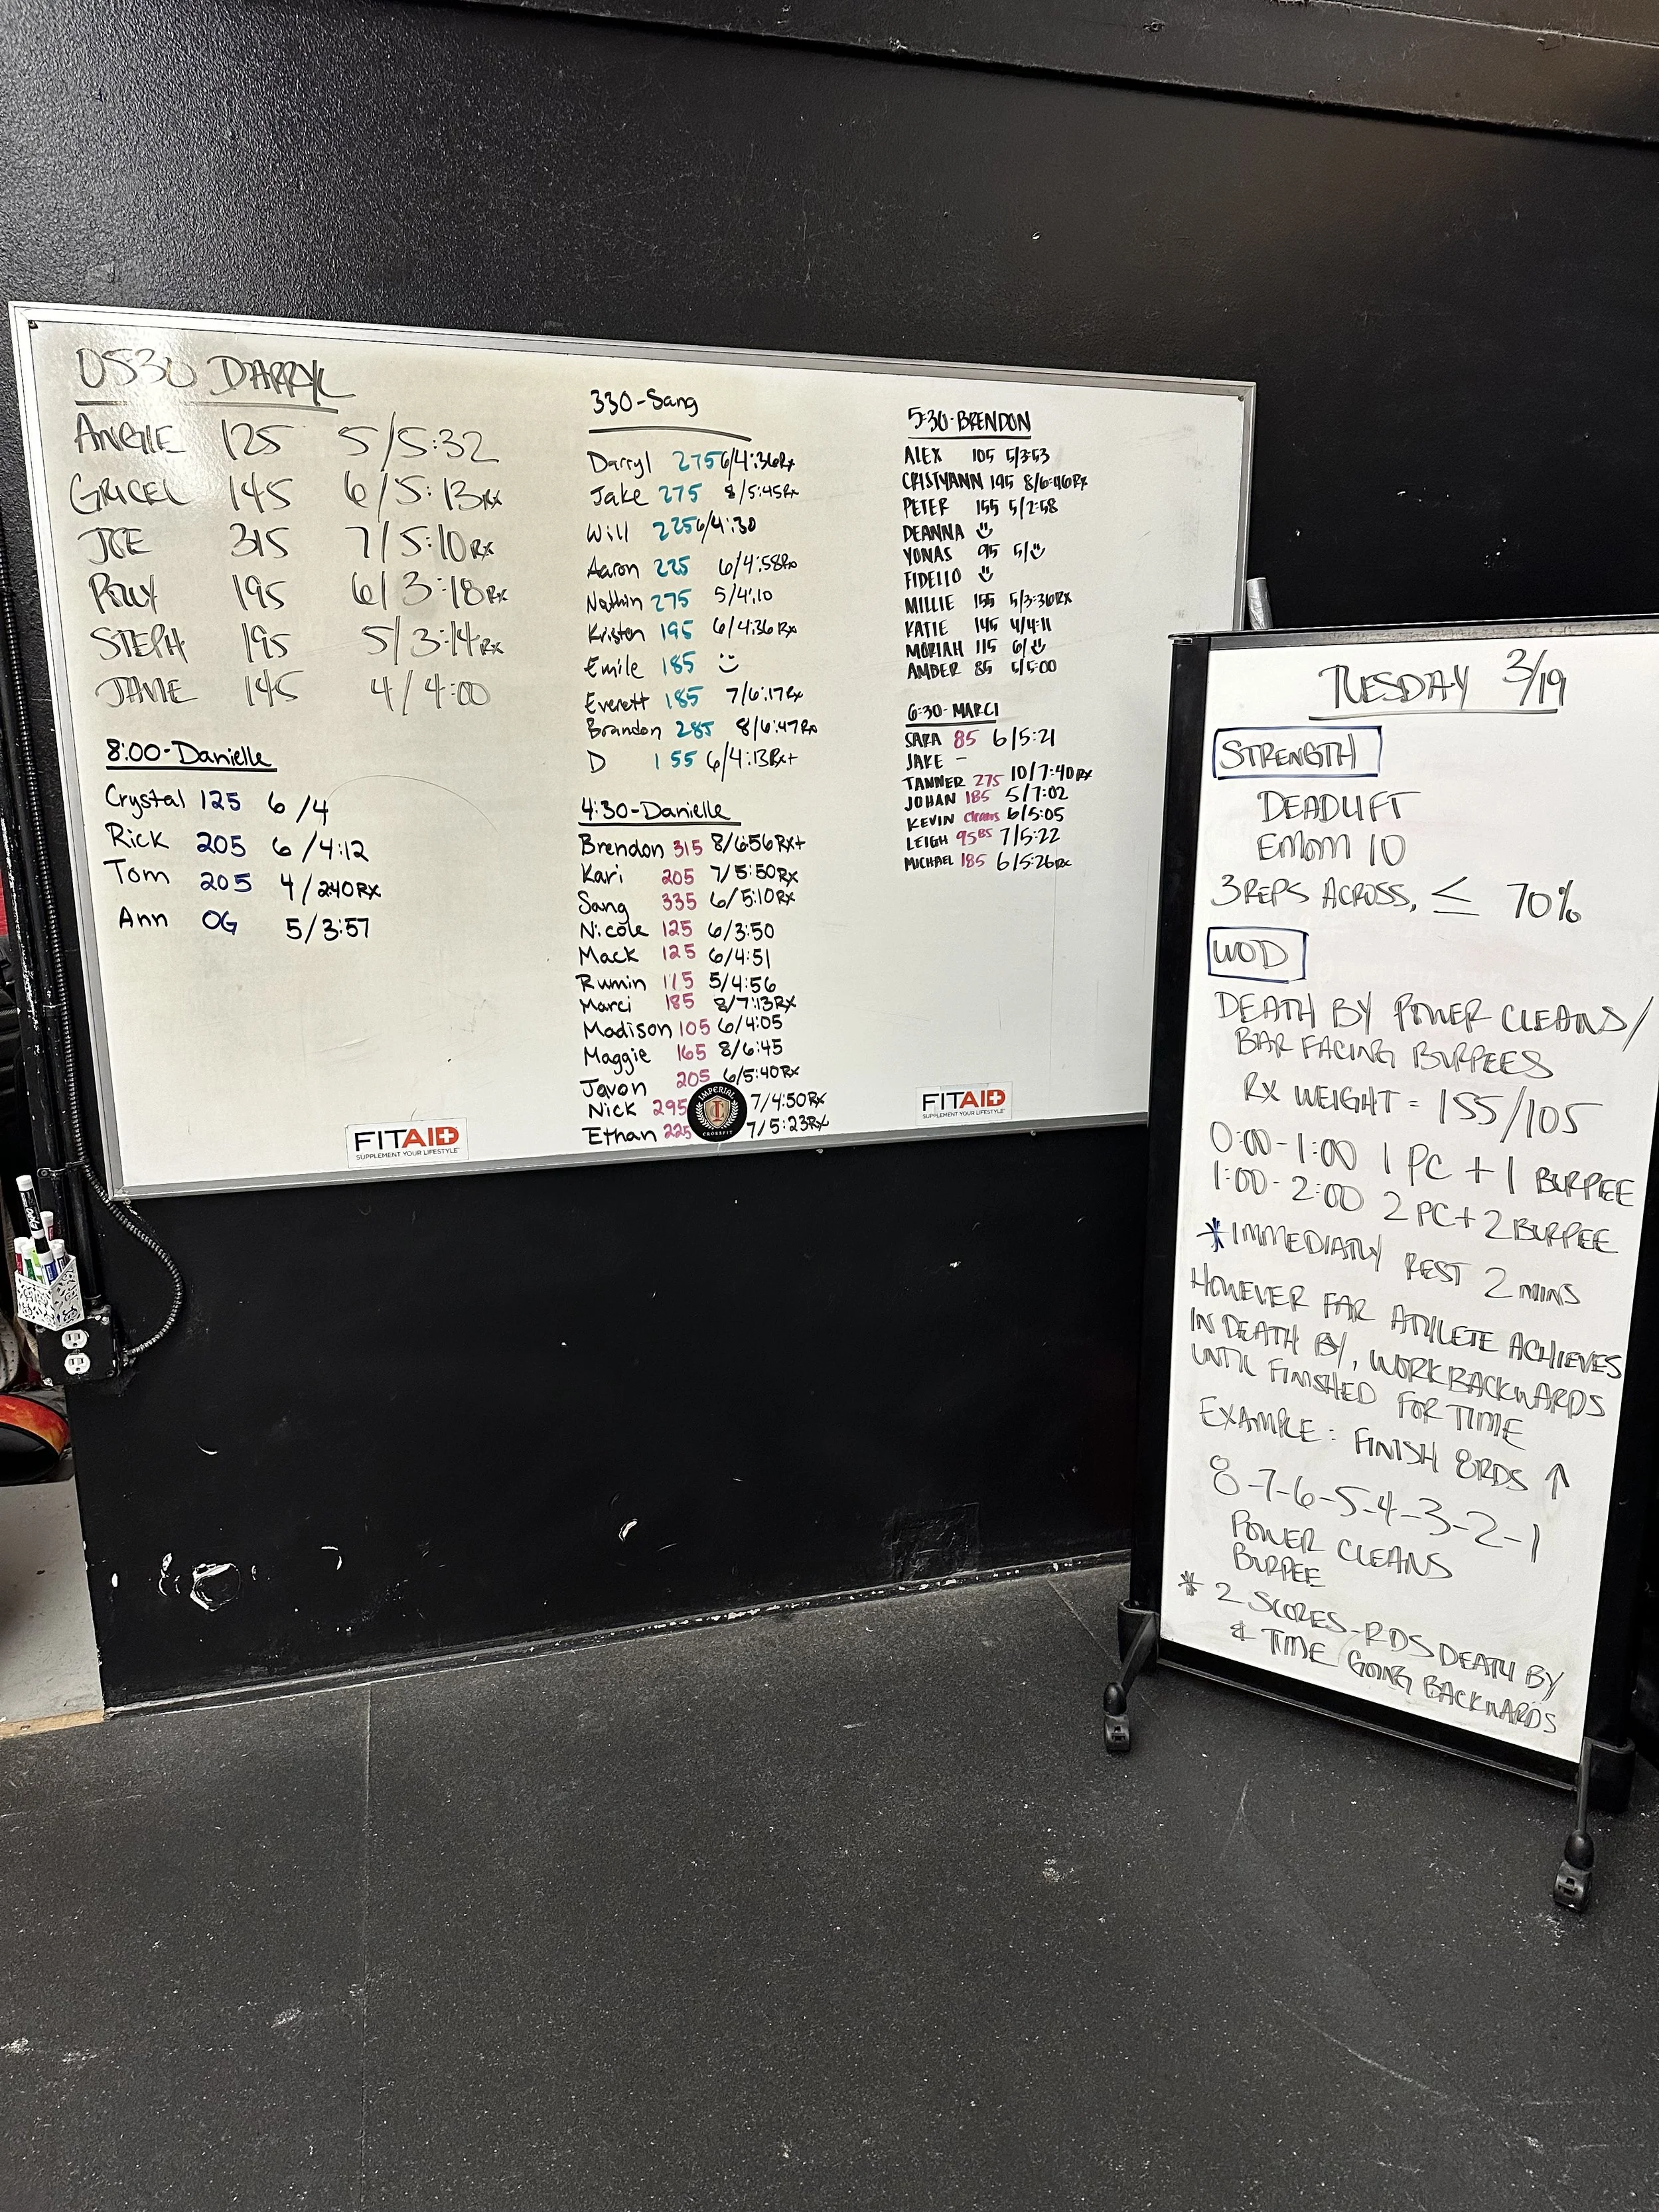 0530 DARRYL
ANGIE 125 5/5:32
GRICEL 145 6/5:13RX
JOE 315 7/5:10RX
ROLLY 195 6/3:18RX
STEPH 195 5/3:14RX
JANIE 145 4/4:00
8:00-Danielle
Crystal 125 6/4
Rick 205 6/4:12
Tom 205 4/2:40RX
Ann OG 5/3:57
330-Sang
Darryl 275 6/4:36Rx
Jake 275 8/5:45Rx
Will 225 6/4:30
Aaron 225 6/4:58Rx
Nathin 275 5/4:10
Kristen 195 6/4:36Rx
Emile 185
Everett 185 7/6:17Rx
Brandon 285 8/6:47Rx
D 155 6/4:13Rx+
4:30-Danielle
Brendon 315 8/6:56Rx+
Kari 205 7/5:50RX
Sang 335 6/5:10RX
Nicole 125 6/3:50
Mack 125 6/4:51
Rumin 175 5/4:56
Marci 185 8/7:13RX
Madison 105 6/4:05
Maggie 165 8/6:45
Javon 205 6/5:40Rx
Nick 295 7/4:50RX
Ethan 225 7/5:23RX
IMPERIAL
CROSSFIT
5:30-BRENDON
ALEX 105 5/3:53
CRISTYANN 195 8/6:46RX
PETER 155 5/2:58
DEANNA
YONAS 95 5/
FIDELIO
MILLIE 155 5/3:36RX
KATIE 145 4/4:11
MORIAH 115 6/
AMBER 85 5/5:00
6:30-MARCI
SARA 85 6/5:21
JAKE -
TANNER 275 10/7:40RX
JOHAN 185 5/7:02
KEVIN cleans 6/5:05
LEIGH 95BS 7/5:22
MICHAEL 185 6/5:26RX
FITAID
SUPPLEMENT YOUR LIFESTYLE
FITAID
SUPPLEMENT YOUR LIFESTYLE
TUESDAY 3/19
STRENGTH
DEADLIFT
EMOM 10
3 REPS ACROSS, ≤ 70%
WOD
DEATH BY POWER CLEANS/
BAR FACING BURPEES
RX WEIGHT = 155/105
0:00-1:00 1 PC + 1 BURPEE
1:00-2:00 2 PC + 2 BURPEE
*IMMEDIATLY REST 2 MINS
HOWEVER FAR ATHLETE ACHIEVES
IN DEATH BY, WORK BACKWARDS
UNTIL FINISHED FOR TIME
EXAMPLE: FINISH 8RDS ↑
8-7-6-5-4-3-2-1
POWER CLEANS
BURPEE
* 2 SCORES-RDS DEATH BY
& TIME GOING BACKWARDS